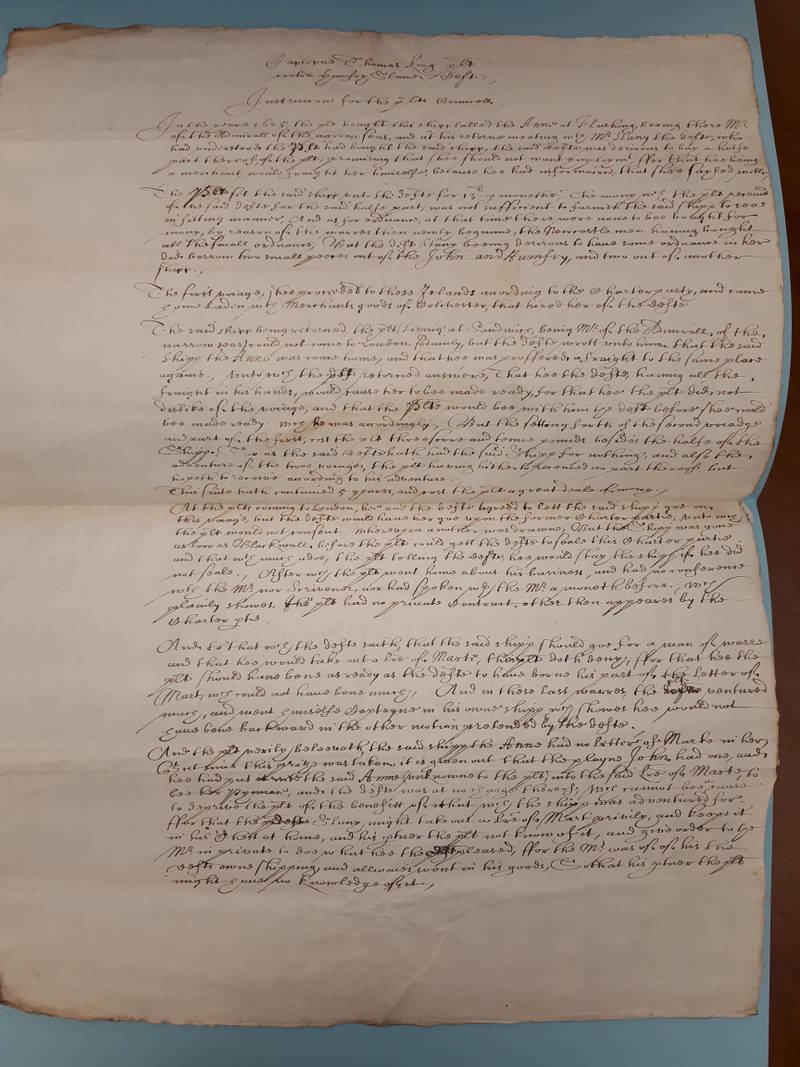 Captayne Thomas King plt
contra Humfrey Slanei deft
Instruccons for the plts Councell.
In the yeare the plt bought this shipp called the Anne at Flushing, beeing there Mr
of the Admirall of the narrow seas, and at his returne meeting wth Mr Slany the defte, who
had understood the Plt had bought the said shipp, the said defte was desirous to buy a halfe
part thereof of the plt, promising that shee should not want employmt, ffor that hee being
a merchant would fraight her himselfe, because hee had informacon, that shee sayled well.
The Plt let the said shipp unto the defte for a moneth. The mony wch the plt receaved
of the said defte for the said halfe part, was not sufficient to furnish the said shipp to sea
in fitting manner. And as for ordnance, at that time there were none to bee bought for
mony, by reason of the warres then newly begunne, the Newcastle men having bought
all the small ordnance, But the deft Slany beeing desirous to have some ordnance in her
did borrow two small peeces out of the John and Humfry, and two out of another
shipp.
The first voiage, shee proceeded to those Islands according to the Charterparty, and came
home laden wth Merchants goods of Colchester, that hired her of the defte
The said shipp being returned, the plt being at Sandwich, being Mr of the Admirall of the
narrow seas could not come to London sodainly, but the defte wrott unto him, that the said
shipp the Anne was come home, and that hee was proffered a fraight to the same place
againe. Unto wch the plt returned answere, That hee the defte, having all the
fraight in his hands, would cause her to bee made ready, for that hee the plt did not
dislike of the voiage, and that the Plte would bee with him the deft before shee could
bee made ready. Wch hee was accordingly, (But the setting forth of the second voiadge
and part of the first, cost the plt threescore and tenne pounds besides the halfe of the
Shippe, Soe as the said defte hath had the said Shipp for nothing, and also the
adventure of the two voiages, the plt having hitherto receaved no part thereof, but
hopeth to receive according to his adventure.
This suite hath continued 5 yeares, and cost the plt a great deale of money.
At the plts coming to London, hee and the defte agreed to lett the said shipp goe on
this voiage, but the defte would have her goe upon the former Charter partie, unto wch
the plt would not consent. Whereupon another was drawne, But the Shipp was gone
as low as Blackwall, before the plt could gett the defte to seale this Charter partie
and that wth much adoe, the plt telling the defte, hee would stay the shipp, if hee did
not seale. After wch the plt went home about his business, and had no conference
with the Mr nor Scrivener, nor had spoken wth the Mr a moneth before. Wch
plainly shewes, the plt had no private Contract, other then appeares by the
Charter ptie.
And to that wch the defte saith, that the said shipp should goe for a man of warre
and that hee would take out a lre of Marte, the plt doth deny, ffor that hee the
plt should have bene as ready as the defte to have borne his part of the letter of
Mart, wch could not have bene much, And in these last warres, the defte ventured
much, and went himselfe Captayne in his owne shipp wch shewes hee would not
have bene backward in the other motion pretended by the defte.
And the plt verily beleeveth the said shipp the Anne had no letter of Marke in her
But until this prize was taken, it is given out that the playne John had one, and
hee had put the said Anne (unknowne to the plt) into the said Lre of Marte, to
bee and the defte was at no charge therof; Wch cannot bee cause
to deprive the plt of the benefitt of that wch the shipp was adventured for.
ffor that the Slany might take out a lre of Mart privily, and keepe it
in his Chest at home, and his ptner the plt not know of it, and give order to the
Mr in private to doe what hee the pleased, ffor the Mr was of his the
defte owne shipping, and allwaies went in his goods, So that his ptner the plt
might have no knowledge of it,